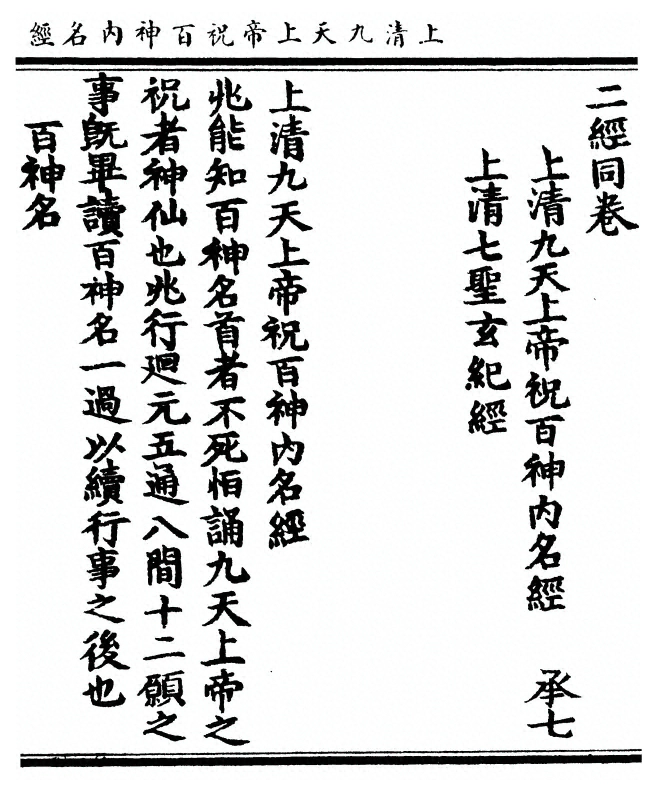 上清九天上帝祝百神內名經
二經同卷
上清九天上帝祝百神內名經 承七
上清七聖玄紀經
上清九天上帝祝百神內名經
兆能知百神名首者不死怕誦九天上帝之
祝者神仙也兆行迴元五通八間十二願之
事既畢讀百神名一過以續行事之後也
百神名